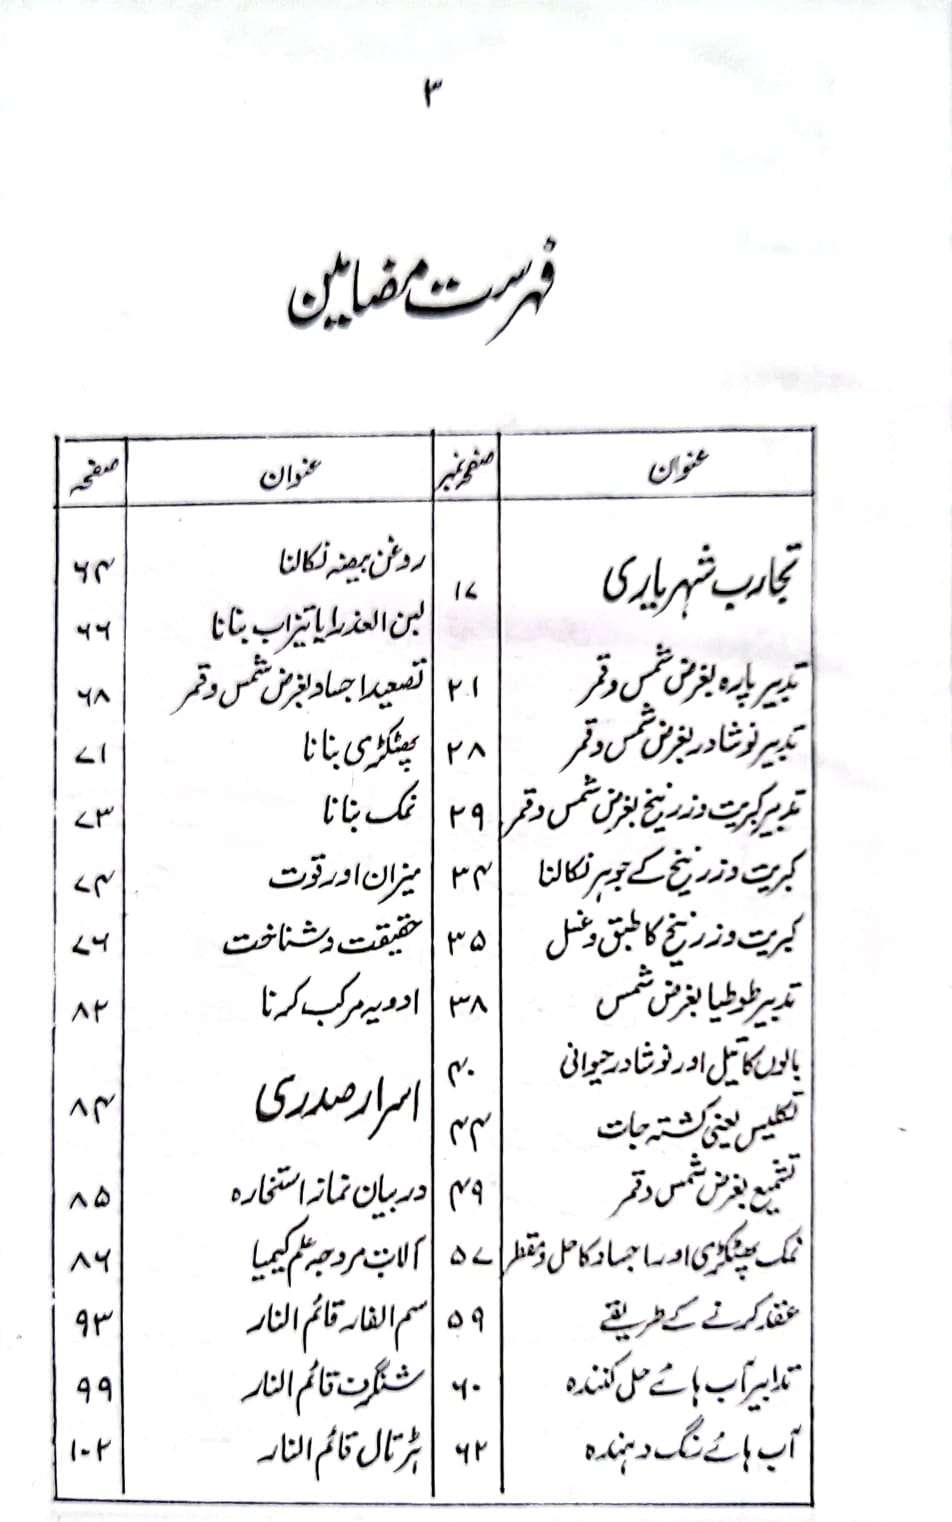 ۳
فہرست مضامین
عنوان صفحہ نمبر عنوان صفحہ
تجارب شہریاری ۱۷
تدبیر پارہ بغرض شمس و قمر ۲۱
تدبیر نوشادر بغرض شمس و قمر ۲۸
تدبیر کبریت و زرنیخ بغرض شمس و قمر ۲۹
کبریت و زرنیخ کے جوہر نکالنا ۳۴
کبریت و زرنیخ کا طبق و غسل ۳۵
تدبیر طوطیا بغرض شمس ۳۸
بالوں کا تیل اور نوشادر حیوانی ۴۰
تکلیس یعنی کشتہ جات ۴۴
تشمیع بغرض شمس و قمر ۴۹
نمک پھٹکڑی اور اجساد کا حل و مقطر ۵۷
عقد کرنے کے طریقے ۵۹
تدابیر آب ہائے حل کنندہ ۶۰
آب ہائے رنگ دہندہ ۶۲
روغن بیضہ نکالنا ۶۴
لبن العذرا یا تیزاب بنانا ۶۶
تصعید اجساد بغرض شمس و قمر ۶۸
پھٹکڑی بنانا ۷۱
نمک بنانا ۷۳
میزان اور قوت ۷۴
حقیقت و شناخت ۷۶
ادویہ مرکب کرنا ۸۲
اسرار صدری ۸۴
دربیان نماز استخارہ ۸۵
آلات مروجہ علم کیمیا ۸۶
سم الفار قائم النار ۹۳
شنگرف قائم النار ۹۹
ہڑتال قائم النار ۱۰۲